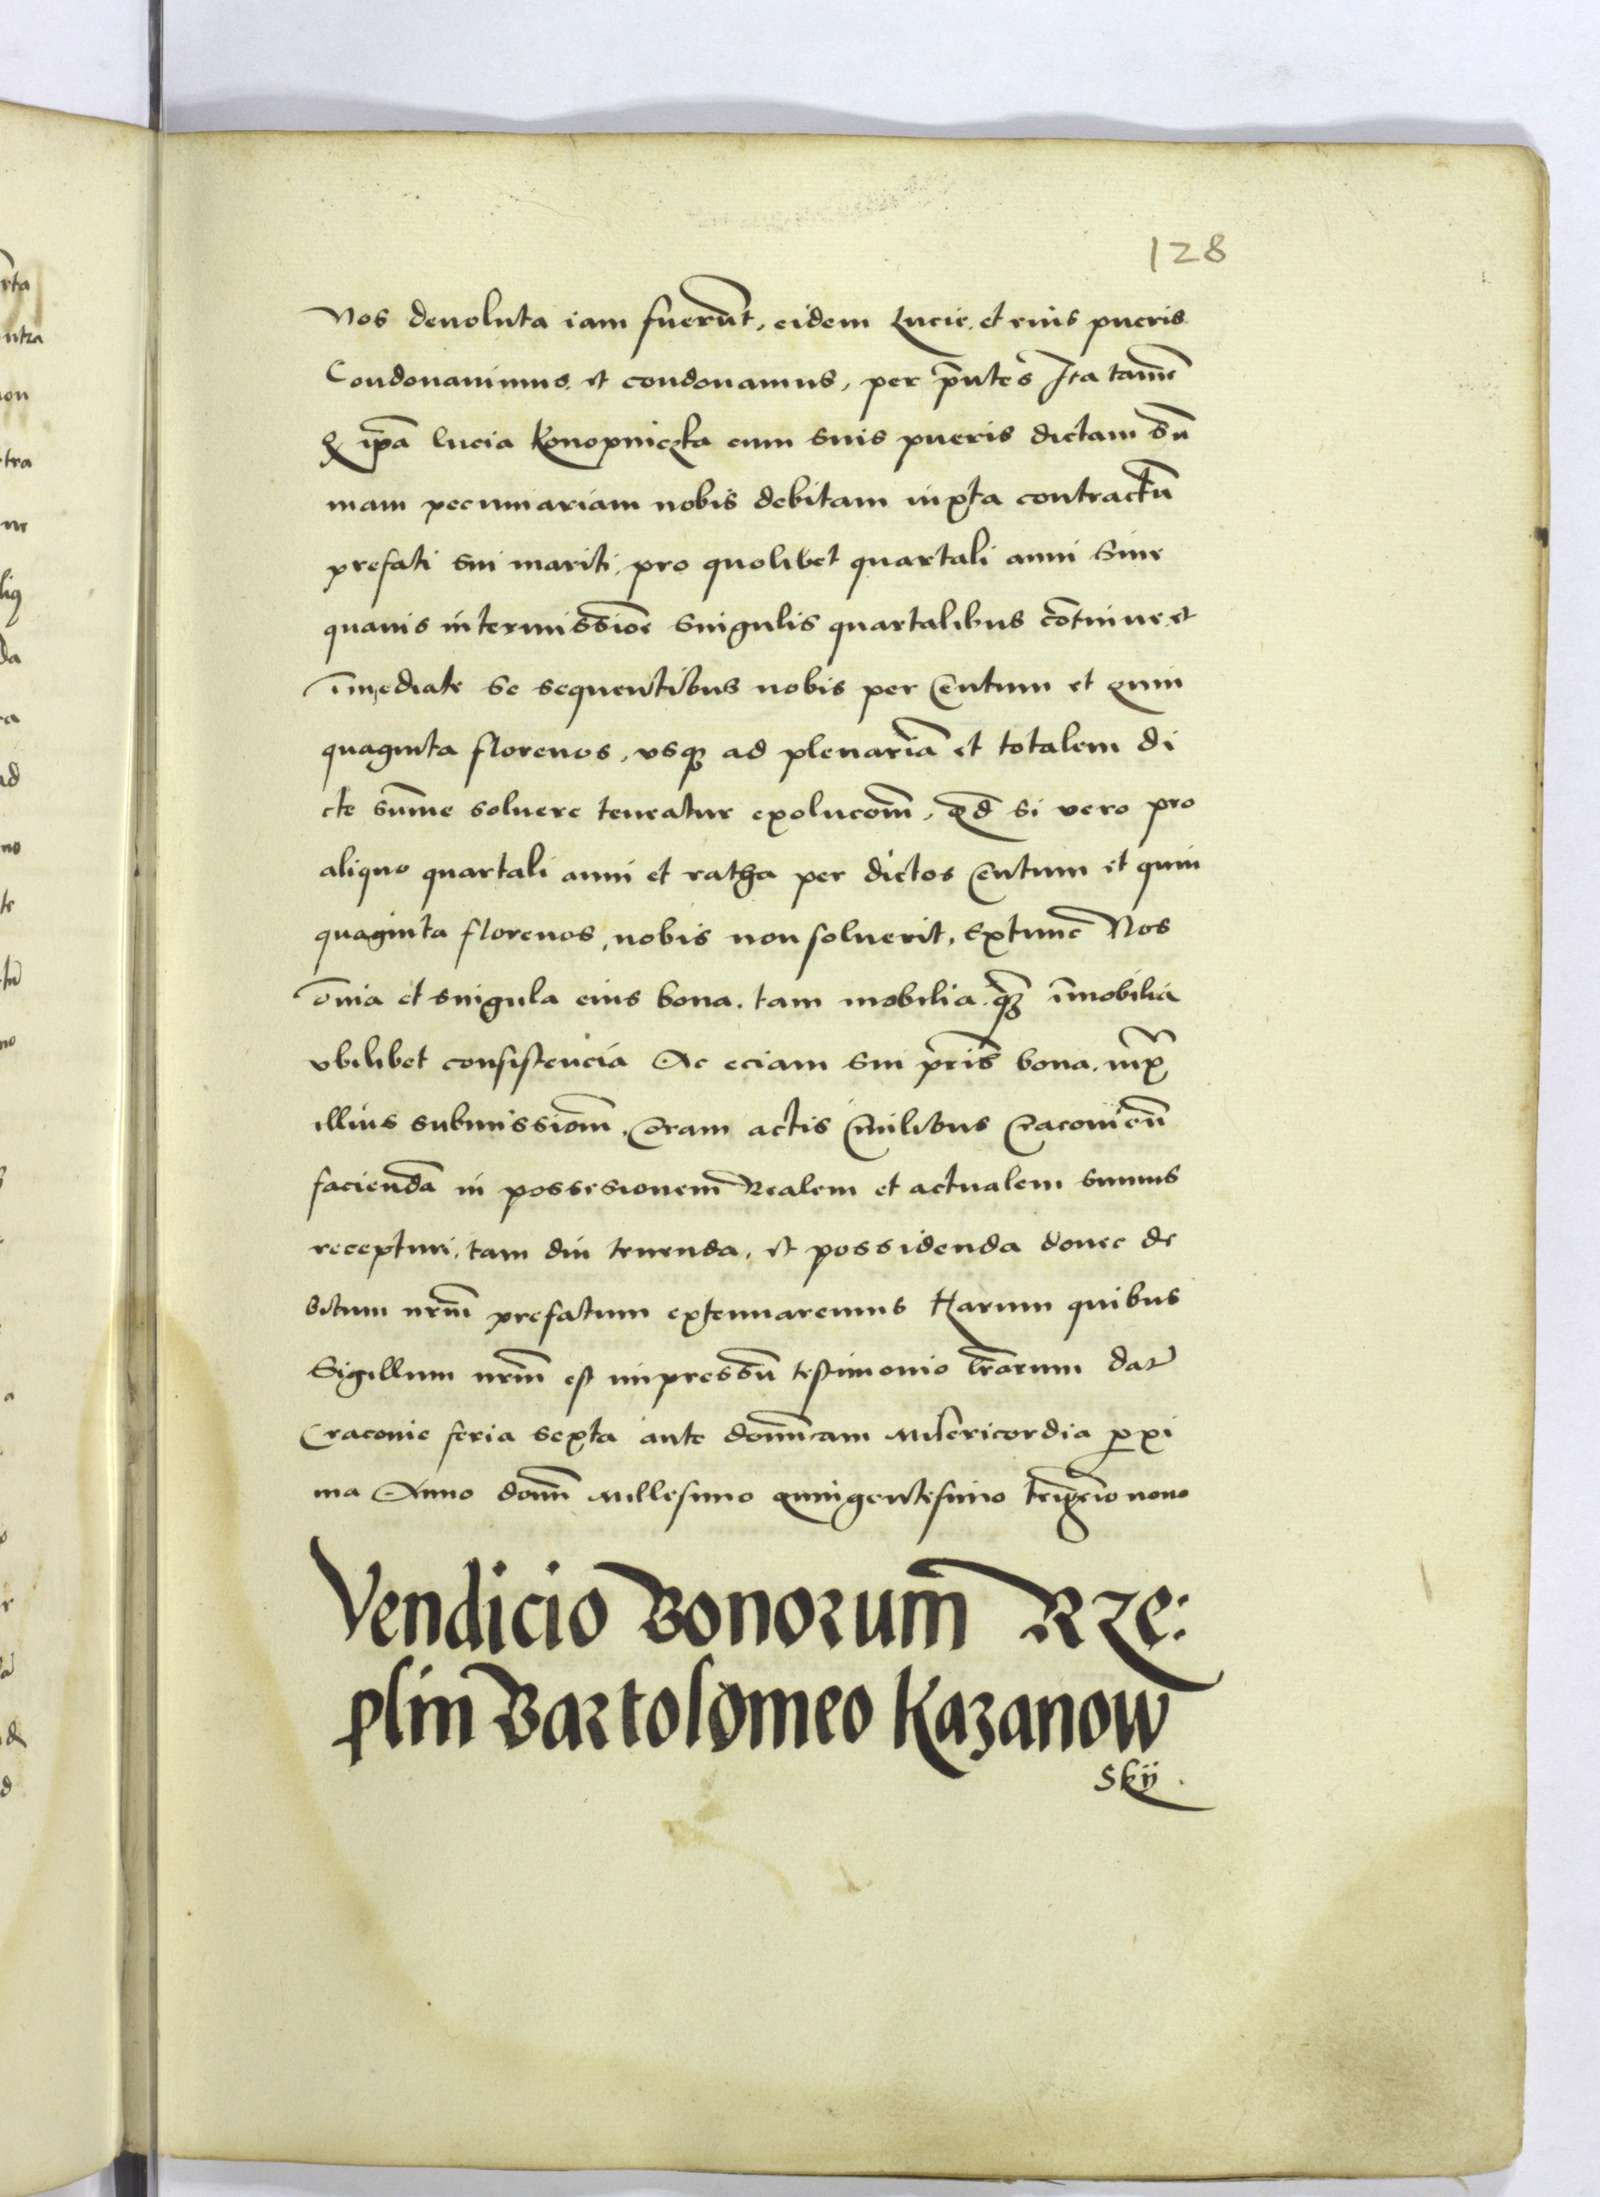 128
Nos deuoluta iam fuerūt, eidem Lucie, et eius pueris
Condonauimus et condonamus, per pn̄tes Ita tamē
q ip̄a lucia Konopniczka cum suis pueris dictam sū
mam pecuniariam nobis debitam iuxta contractū
prefati sui mariti, pro quolibet quartali anni Sine
quauis intermissiōe singulis quartalibus cōtinue et
im̄ediate se sequentibus nobis per Centum et quin
quaginta florenos, vsq3 ad plenariā et totalem di
cte sum̄e soluere teneatur exolucōm̄, qd̄ si vero pro
aliquo quartali anni et ratha per dictos Centum et quin
quaginta florenos, nobis non soluerit, Extunc Nos
om̄ia et singula eius bona, tam mobilia q̄3 im̄obilia
vbilibet consistencia Ac eciam sui pr̄is bona, iux̄
illius submissiom̄, Coram actis Ciuilibus Cracouien̄
faciendā in possesionem Realem et actualem sumus
recepturi, tam diu tenenda, et possidenda donec de
bitum nr̄m prefatum extenuaremus Harum quibus
Sigillum nr̄m est impressū testimonio lr̄arum dat̄
Cracouie feria sexta ante domī̄cam Misericordia proxi
ma Anno domī Millesimo quingentesimo nono
Vendicio Bonorum̄ Rze:
plin Bartolomeo Kazanow
Skÿ.